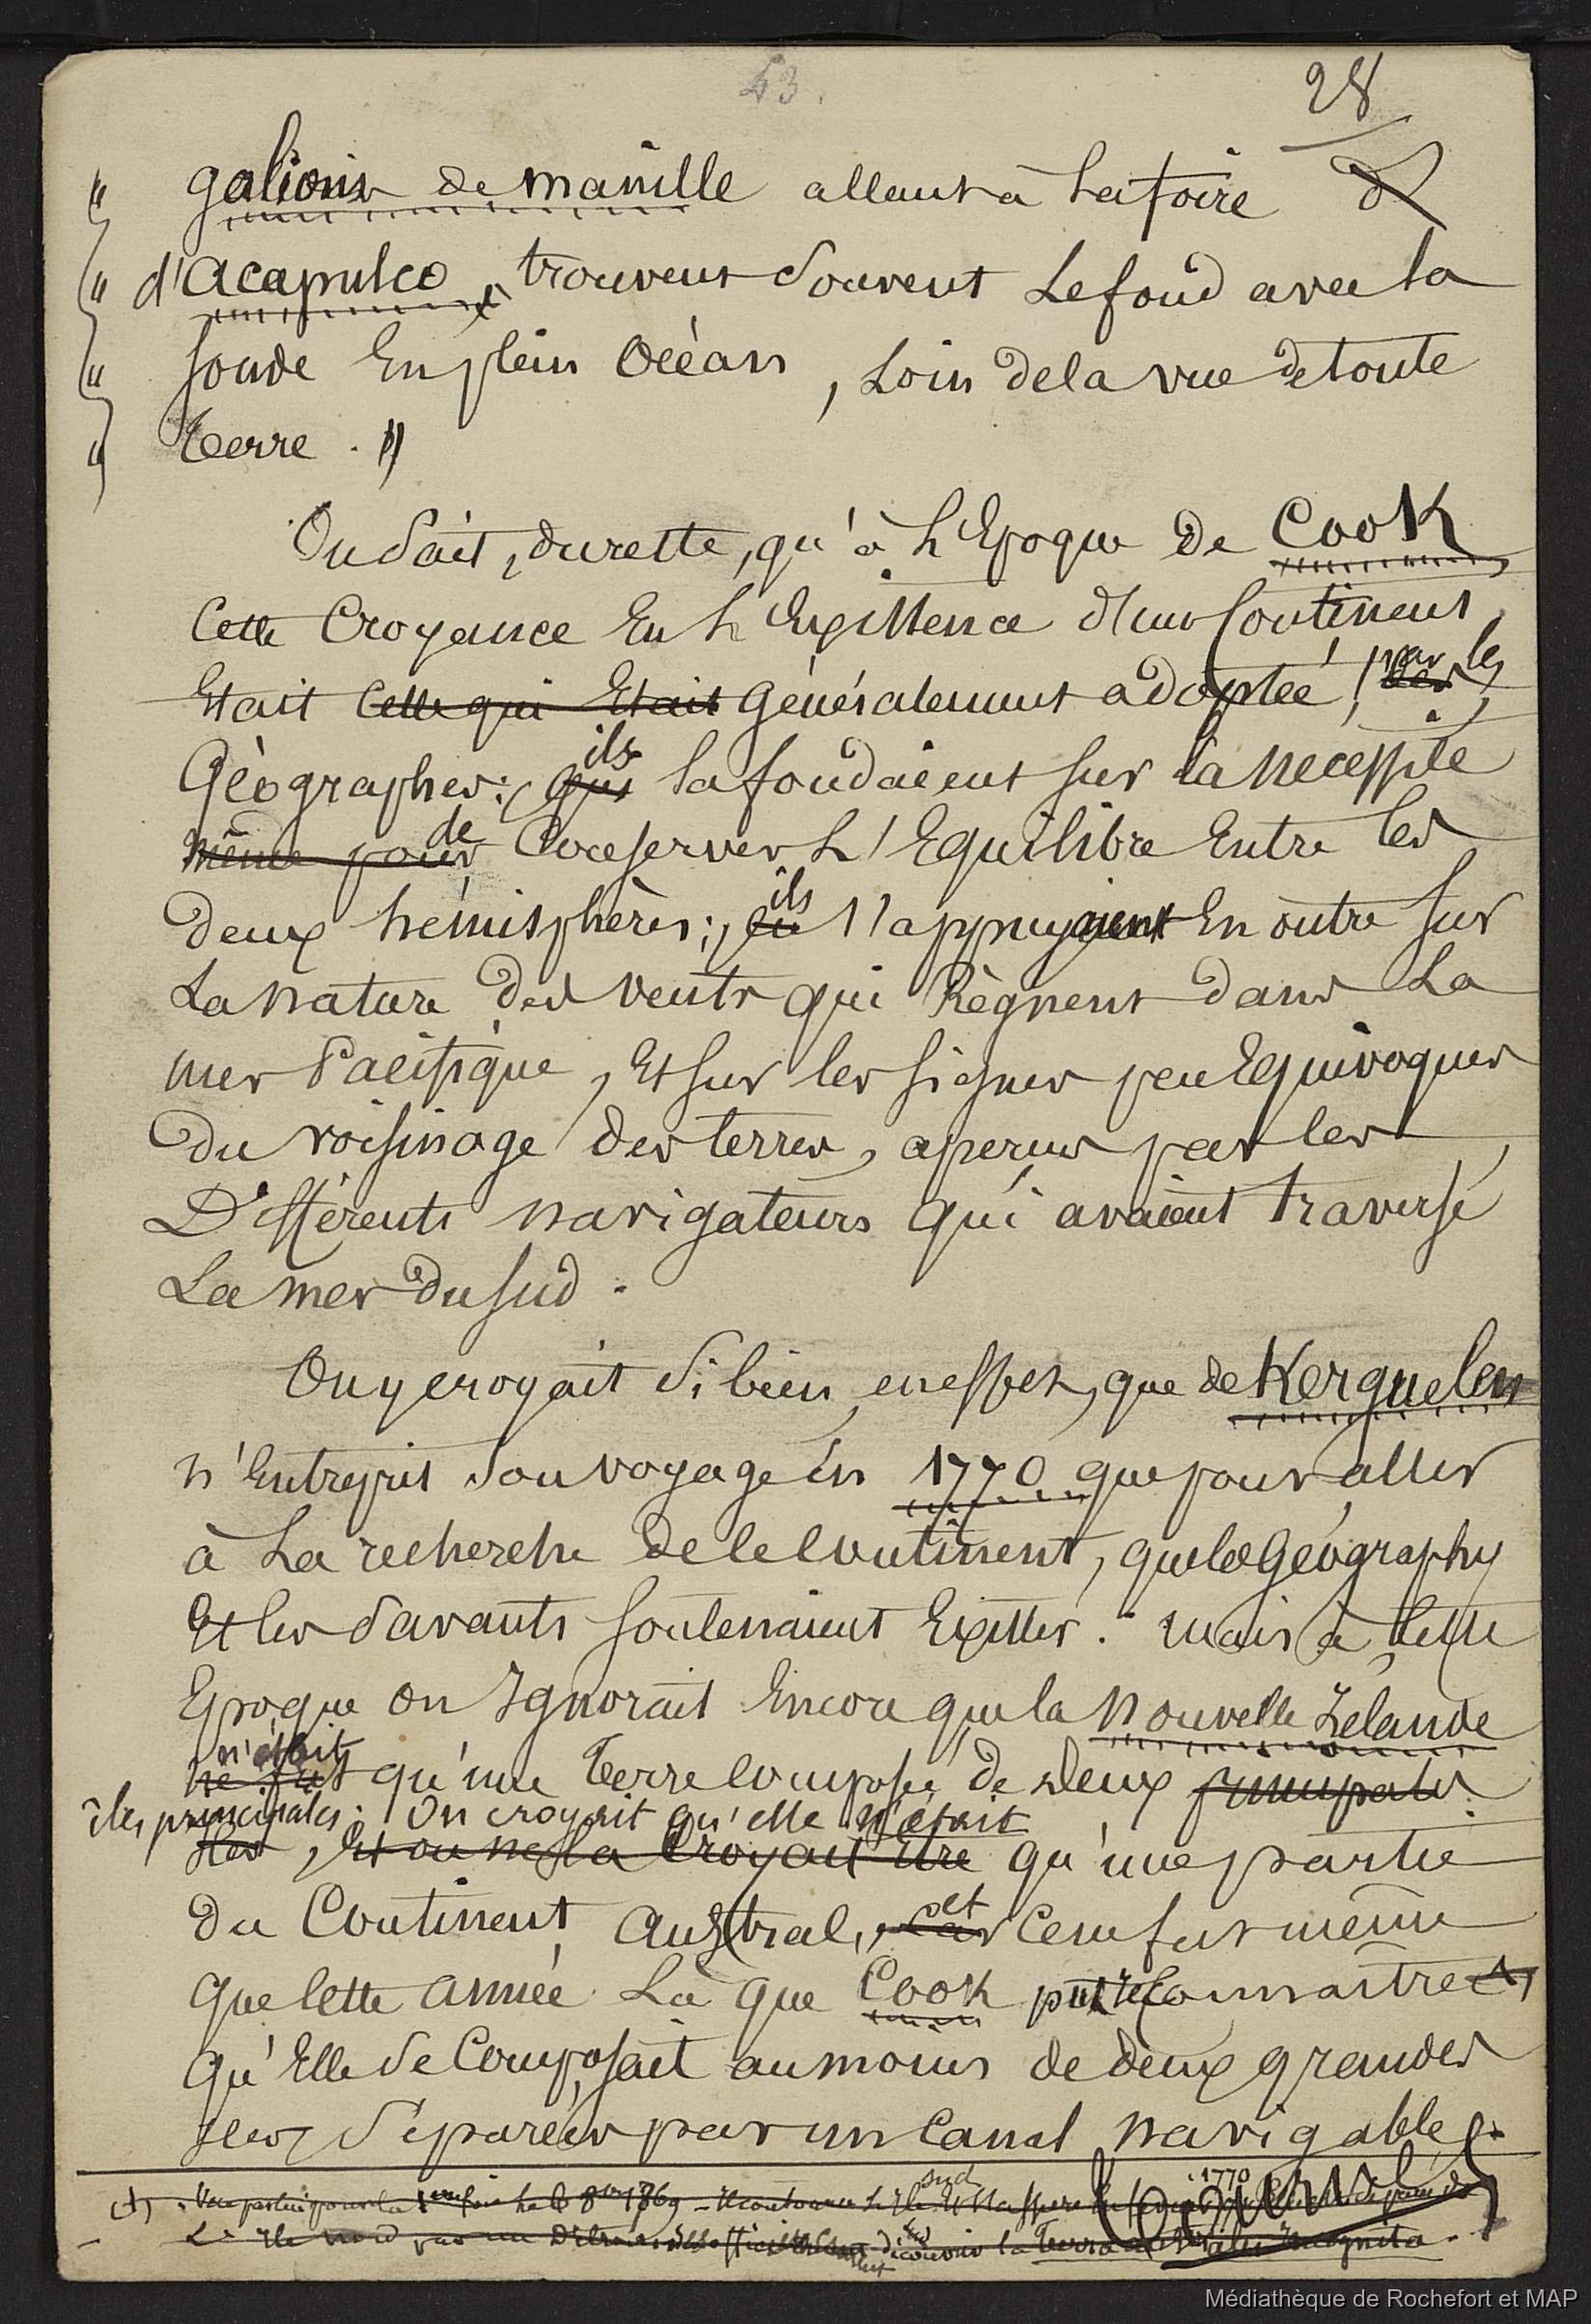 43.
28
" galions de manille allant à la foire d
" d'acapulco, trouvent souvent le fond avec la
" sonde En plein Océan, loin de la vue de toute
" terre. "
On sait, du reste, qu'à l'Epoque de Cook
Cette Croyance En l'Existence d'un Continent
Etait celle qui Etait généralement adoptée, des par les
Géographes; qui ils la fondaient sur la necessité
même pour de Conserver l'Equilibre Entre les
deux hémisphères; ils s'appuyaient En outre sur
la nature des vents qui Règnent dans la
mer Pacifique, Et sur les signes peu Equivoques
du voisinage des terres, aperçus par les
Différents navigateurs qui avaient traversé
la mer du sud.
On y croyait si bien, en effet, que de Kerguelen
n'Entreprit son voyage En 1770 que pour aller
à la recherche de ce Continent, que les Géographes
Et les savants soutenaient Exister. mais à cette
Epoque on Ignorait Encore que la nouvelle Zelande
ne fut n'était qu'une terre composée de deux principales
îles principales: On croyait qu'elle n'était
Iles, Et on ne la Croyait être qu'une partie
du Continent Austral, car et ce ne fut même
que cette année là que Cook put reconnaître (1)
qu'Elle se Composait au moins de deux grandes
Iles séparées par un Canal navigable.
(1) Vue par lui pour la 1ère fois le 6 8bre 1769 - Il contourna l'Ile sud 1770
L'Ile nord découvrir la Terra australis Incognita.
Médiathèque de Rochefort et MAP